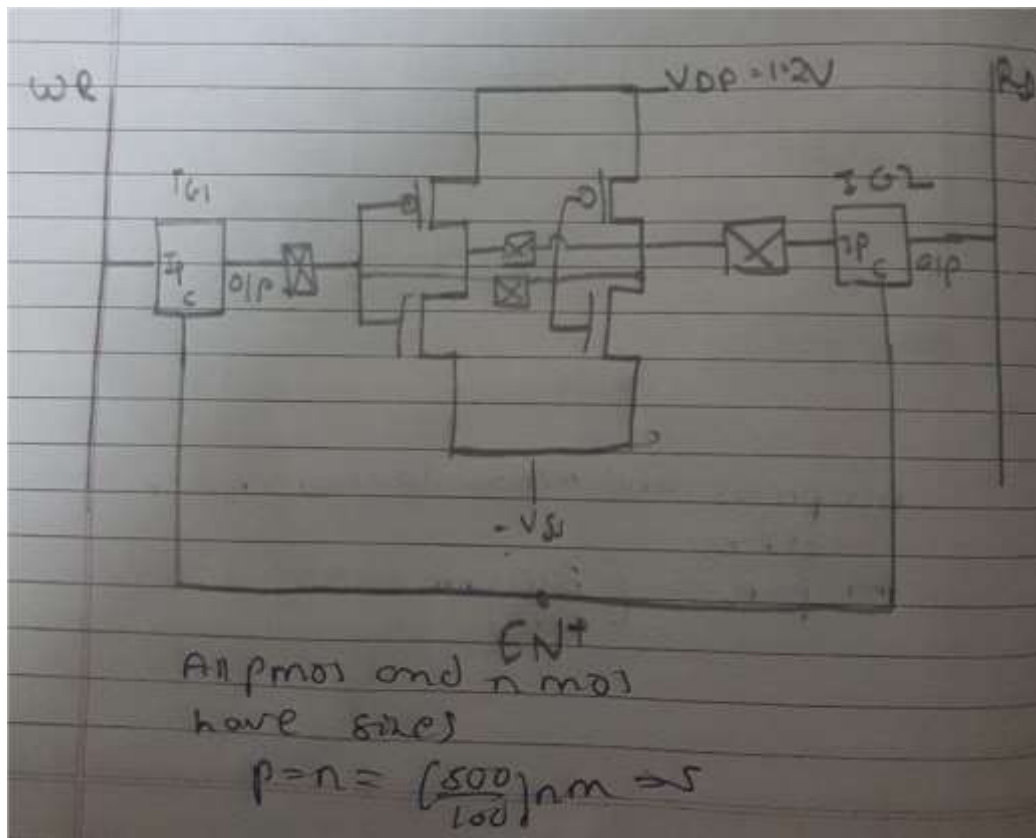 WR
VDD = 1.2V
Rd
TG1
TG2
Ip
C
O/P
IP
C
O/P
- VSS
EN+
All pmos and nmos
have sizes
p=n= (500/100) nm ⇒ 5